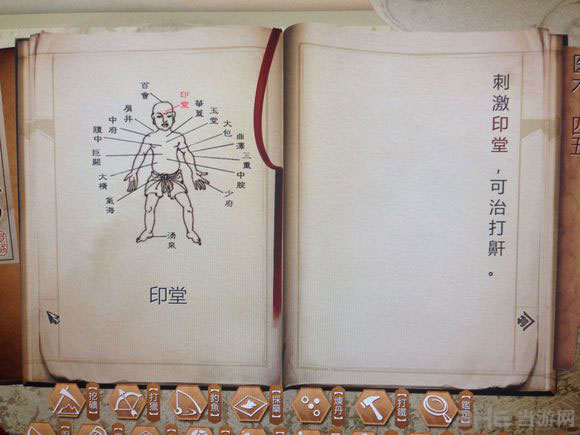 百會
印堂
華蓋
肩井
玉堂
中府
大包
膻中
曲澤
巨闕
三重
中脘
大橫
少府
氣海
湧泉
印堂
刺激印堂,可治打鼾。
【挖礦】
【打獵】
【釣魚】
【採藥】
【煉丹】
【打鐵】
当游网